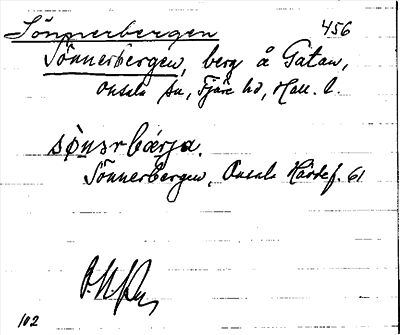 Sönnerbergen 456
Sönnerbergen, berg å Gatan,
Onsala sn, Fjäre hd, Hall. l.
sönsrbærja.
Sönnerbergen, Onsala Härdef. 61
102